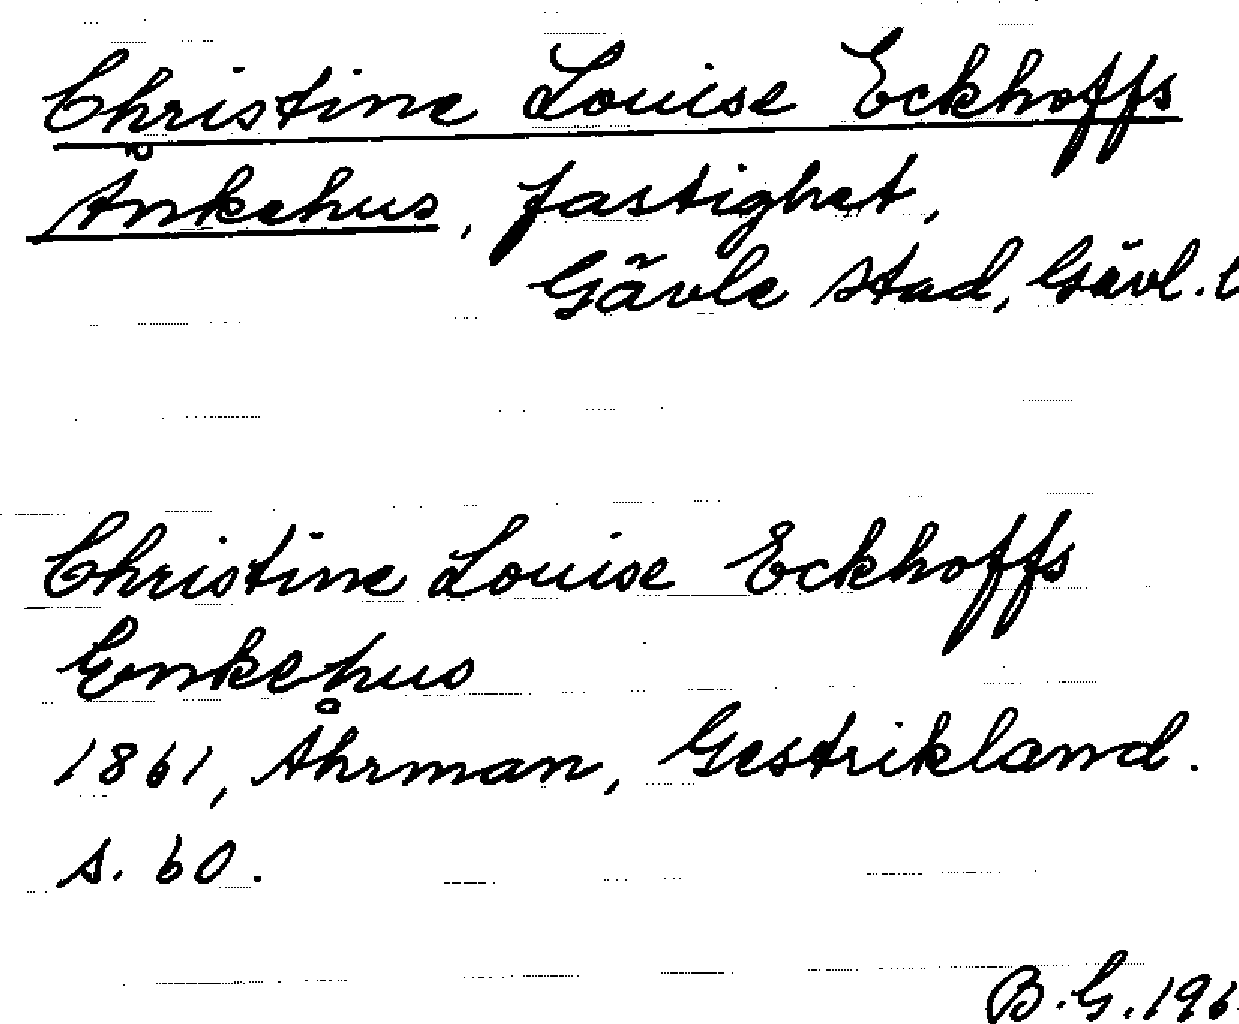 Christine Louise Eckhoffs
Änkehus, fastighet,
Gävle stad, Gävl. l
Christine Louise Eckhoffs
Enkehus
1861, Åhrman, Gestrikland.
s. 60.
B.G. 196